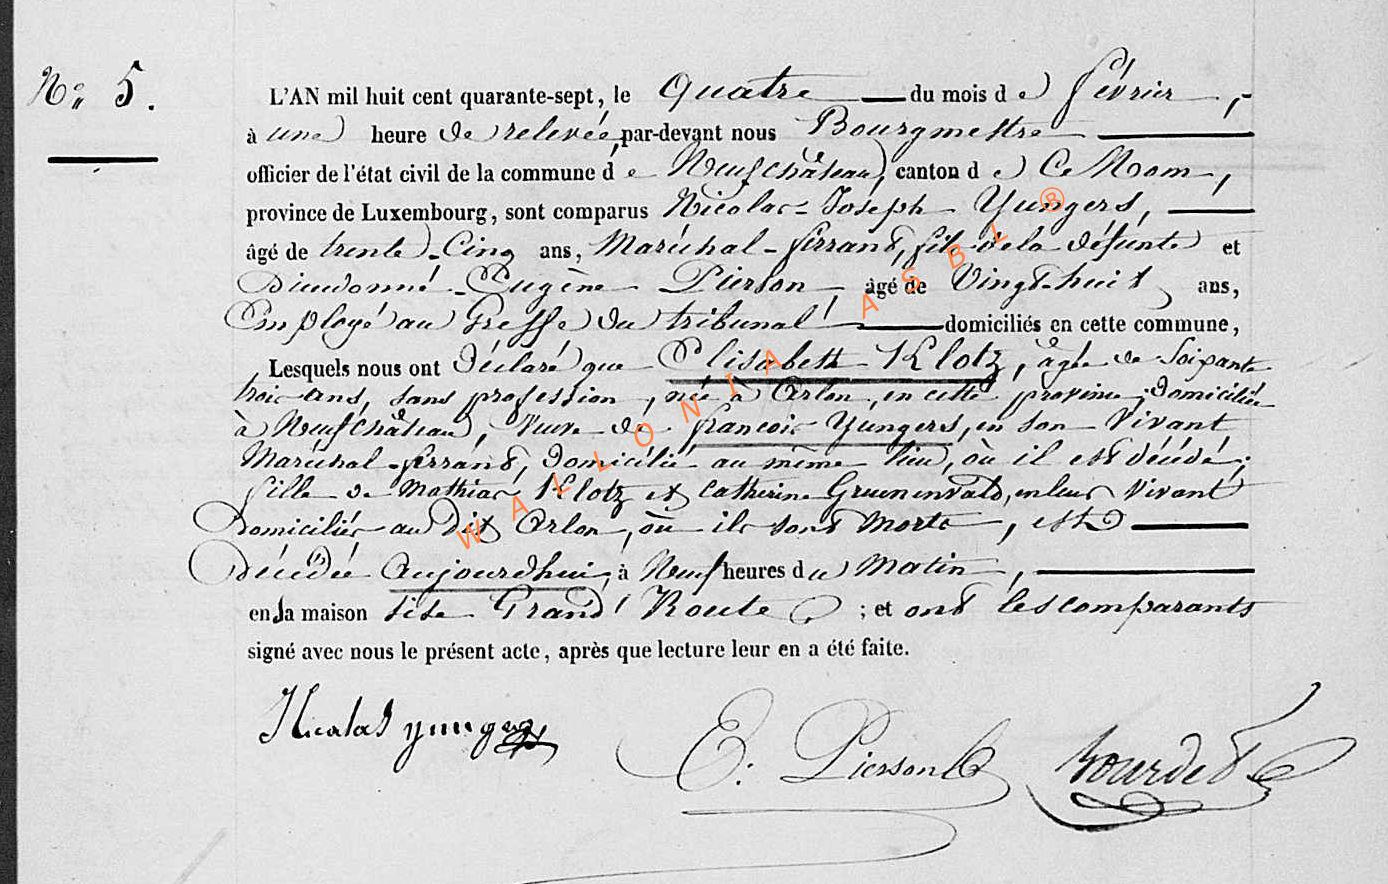 N° 5.
L'AN mil huit cent quarante-sept, le Quatre du mois de février,
à une heure de relevée, par-devant nous Bourgmestre
officier de l'état civil de la commune de Neufchâteau, canton de Ce Nom,
province de Luxembourg, sont comparus Nicolas-Joseph Yungers,
âgé de trente-Cinq ans, Maréchal-ferrant, fils de la défunte et
Dieudonné-Eugène Pierson âgé de Vingt-huit ans,
Employé au Greffe du tribunal domiciliés en cette commune,
Lesquels nous ont Déclaré que Elisabeth Klotz, âgée de Soixante
trois ans, sans profession, née à Arlon, en cette province, domiciliée
à Neufchâteau, Veuve de françois Yungers, en son Vivant
Maréchal-ferrant, domicilié au même lieu, où il est décédé;
fille de Mathias Klotz et Catherine Gruenenvald, en leur Vivant
Domiciliés au dit Arlon, où ils sont Morts, est
Décédée Aujourdhui, à Neuf heures du Matin,
en la maison sise Grand'Route ; et ont les comparants
signé avec nous le présent acte, après que lecture leur en a été faite.
Nicolas yungers
E. Pierson
Bourdet
WALLONIA ASBL ®